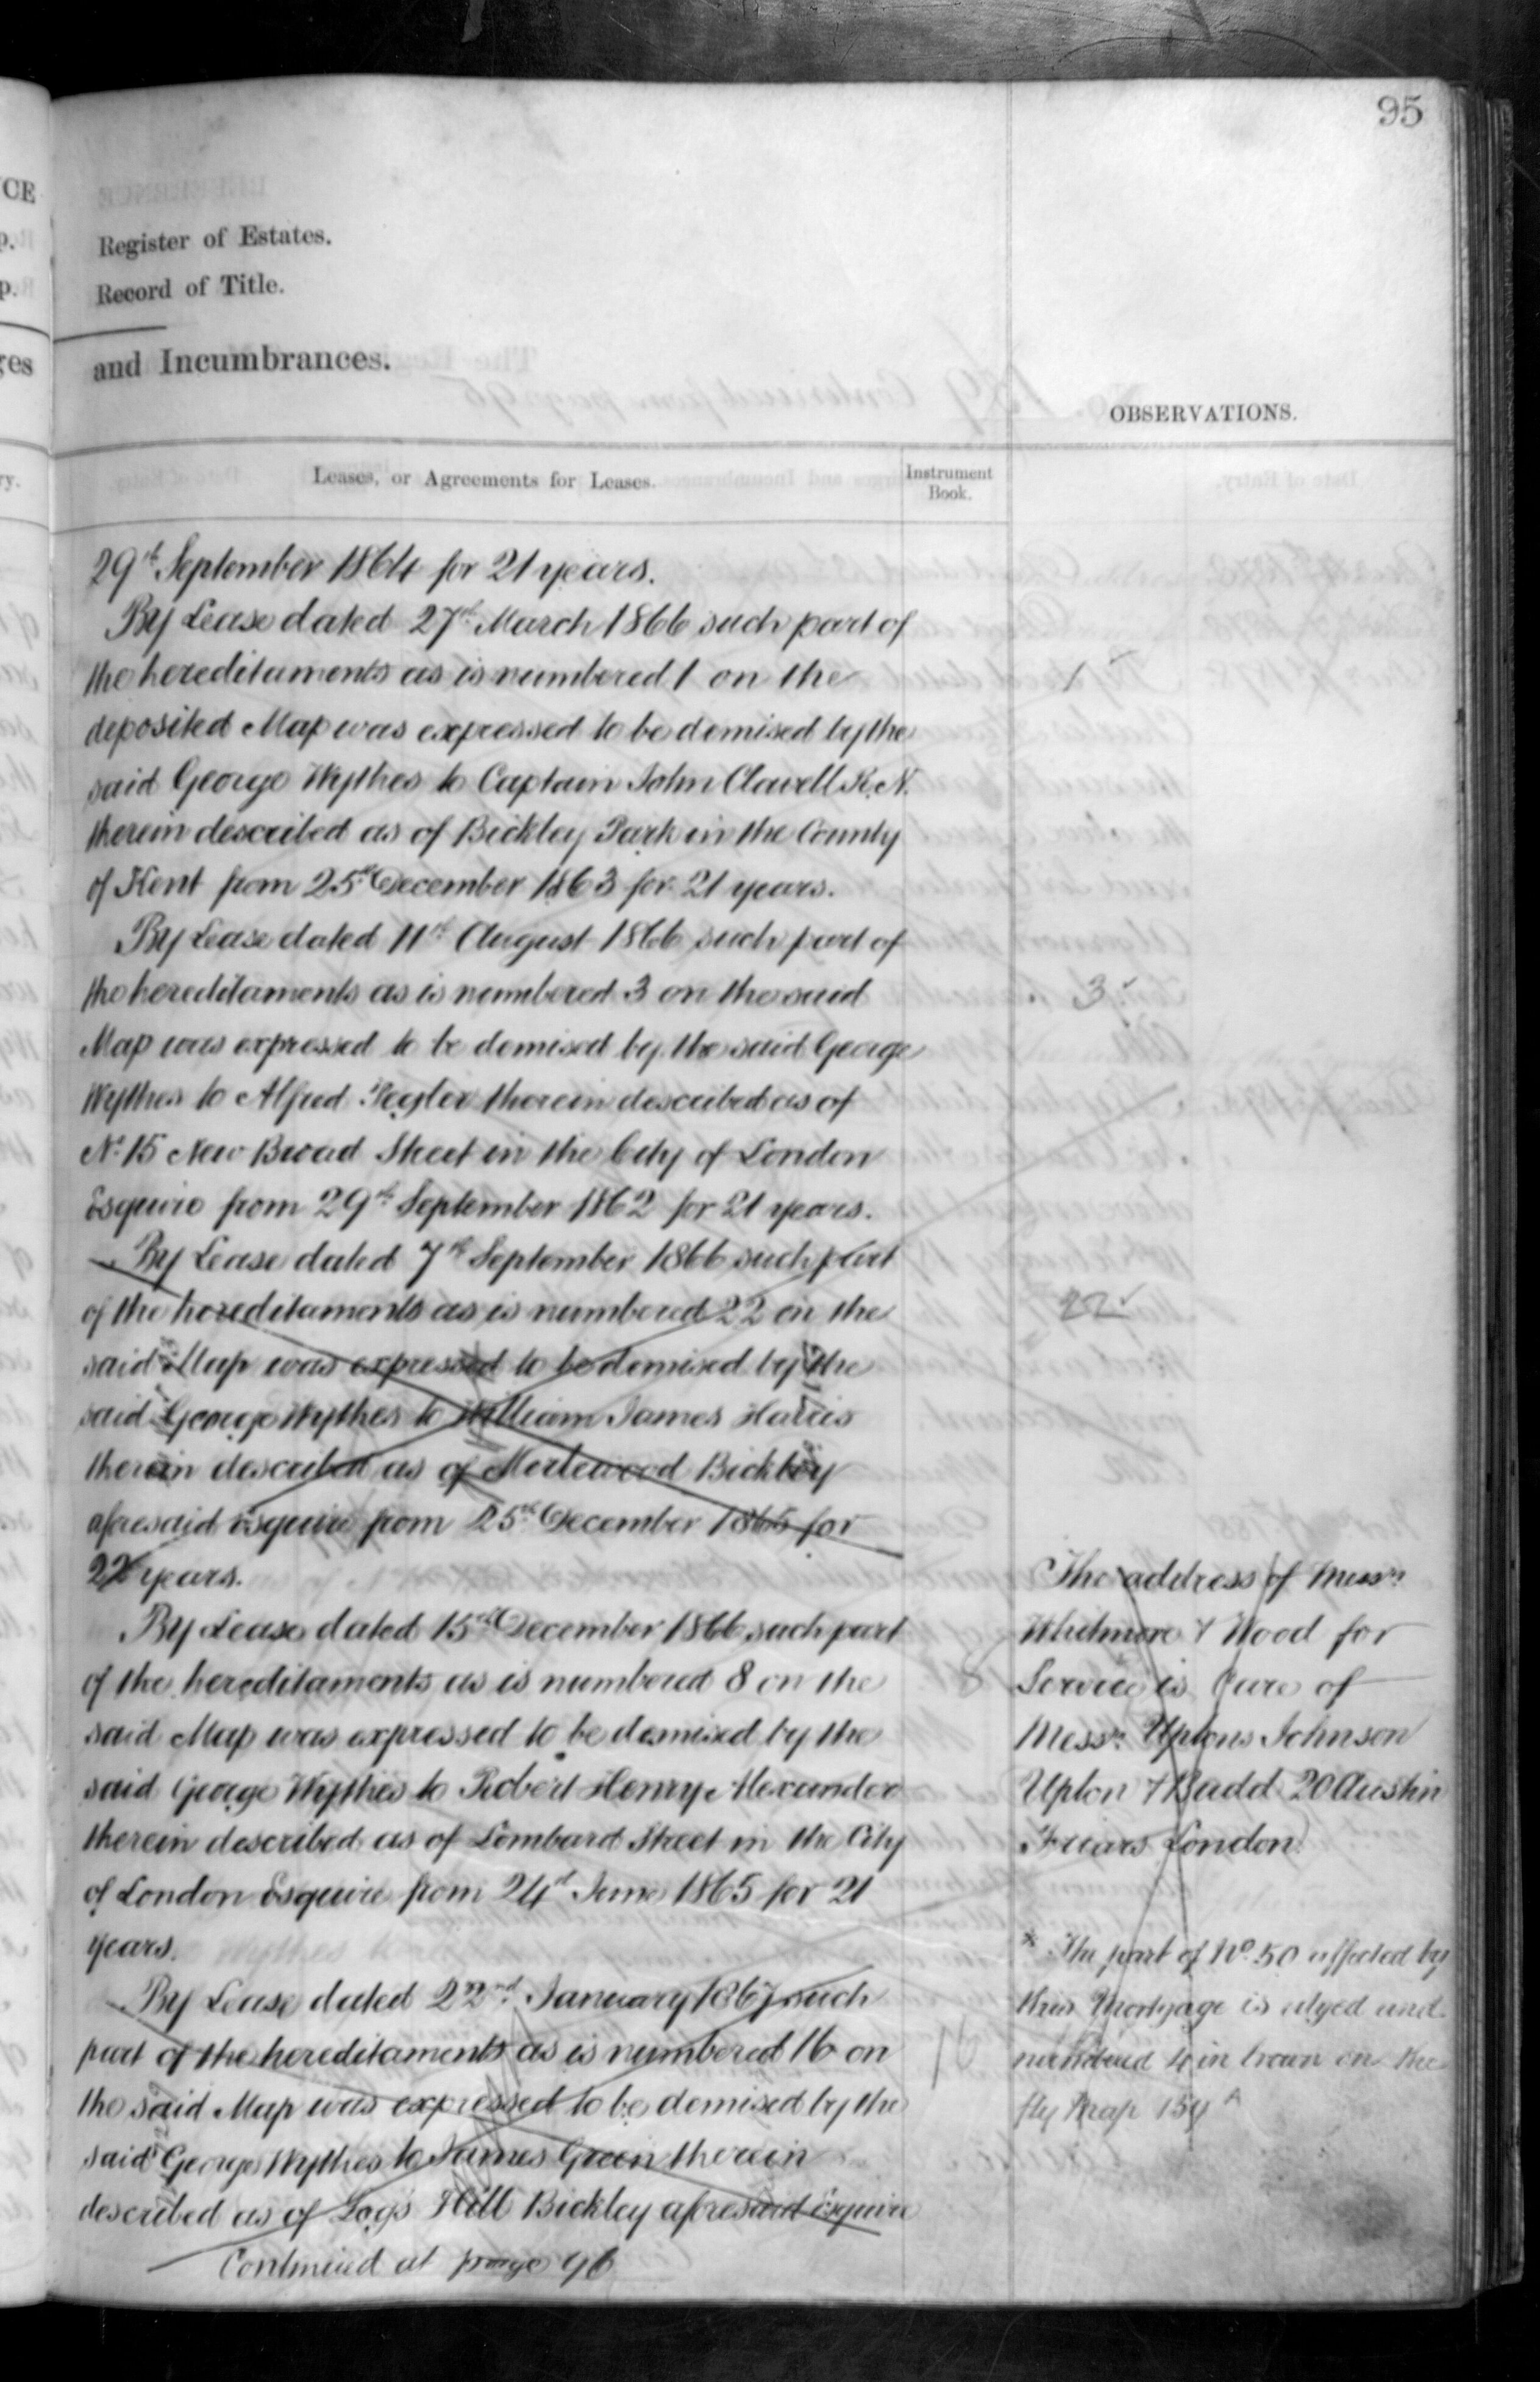 95
Register of Estates.
Record of Title.
and Incumbrances.
OBSERVATIONS.
Leases, or Agreements for Leases.
Instrument
Book.
29th September 1864 for 21 years.
By Lease dated 27th March 1866 such part of
the hereditaments as is numbered 1 on the
1
deposited Map was expressed to be demised by the
said George Wythes to Captain John Clavell R.N.
therein described as of Bickley Park in the County
of Kent from 25th December 1863 for 21 years.
By Lease dated 11th August 1866 such part of
the hereditaments as is numbered 3 on the said
3
Map was expressed to be demised by the said George
Wythes to Alfred therein described as of
No 15 New Broad Street in the City of London
Esquire from 29th September 1862 for 21 years.
By Lease dated 7th September 1866 such part
of the hereditaments as is numbered 22 on the
22
said Map was expressed to be demised by the
said George Wythes to William James Harris
therein described as of Bickley
aforesaid Esquire from 25th December 1865 for
years.
By Lease dated 15th December 1866 such part
of the hereditaments as is numbered 8 on the
8
said Map was expressed to be demised by the
said George Wythes to Robert Henry Alexander
therein described as of Lombard Street in the City
of London Esquire from 24th June 1865 for 21
years.
By Lease dated 22nd January 1867 such
part of the hereditaments as is numbered 16 on
16
the said Map was expressed to be demised by the
said George Wythes to James Green therein
described as of Logs Hill Bickley aforesaid Esquire
Continued at page 96
The address of Messrs
Whitmore & Wood for
Service is Care of
Messrs Uptons Johnson
Upton & Budd 20 Austin
Friars London
* The part of No. 50 affected by
this Mortgage is edged and
numbered in brown on the
fly Map 159 A